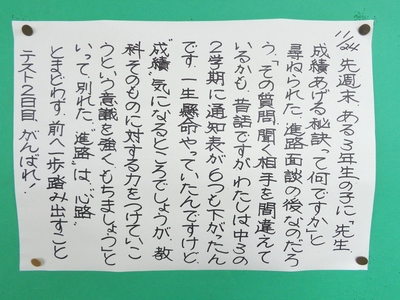 11/24 先週末、ある3年生の子に、「先生、
成績あげる秘訣って何ですか」と
尋ねられた。進路面談の後なのだろ
う。「その質問、聞く相手を間違えて
いるかも。昔話ですが、わたしは中3の
2学期に通知表が6つも下がったん
です。一生懸命やっていたんですけど。
“成績”気になるところでしょうが、教
科そのものに対する力をつけていこ
うという意識を強くもちましょう」と
いって、別れた。“進路”は、“心路”
とまどわず、前へ一歩踏み出すこと
テスト2日目、がんばれ!